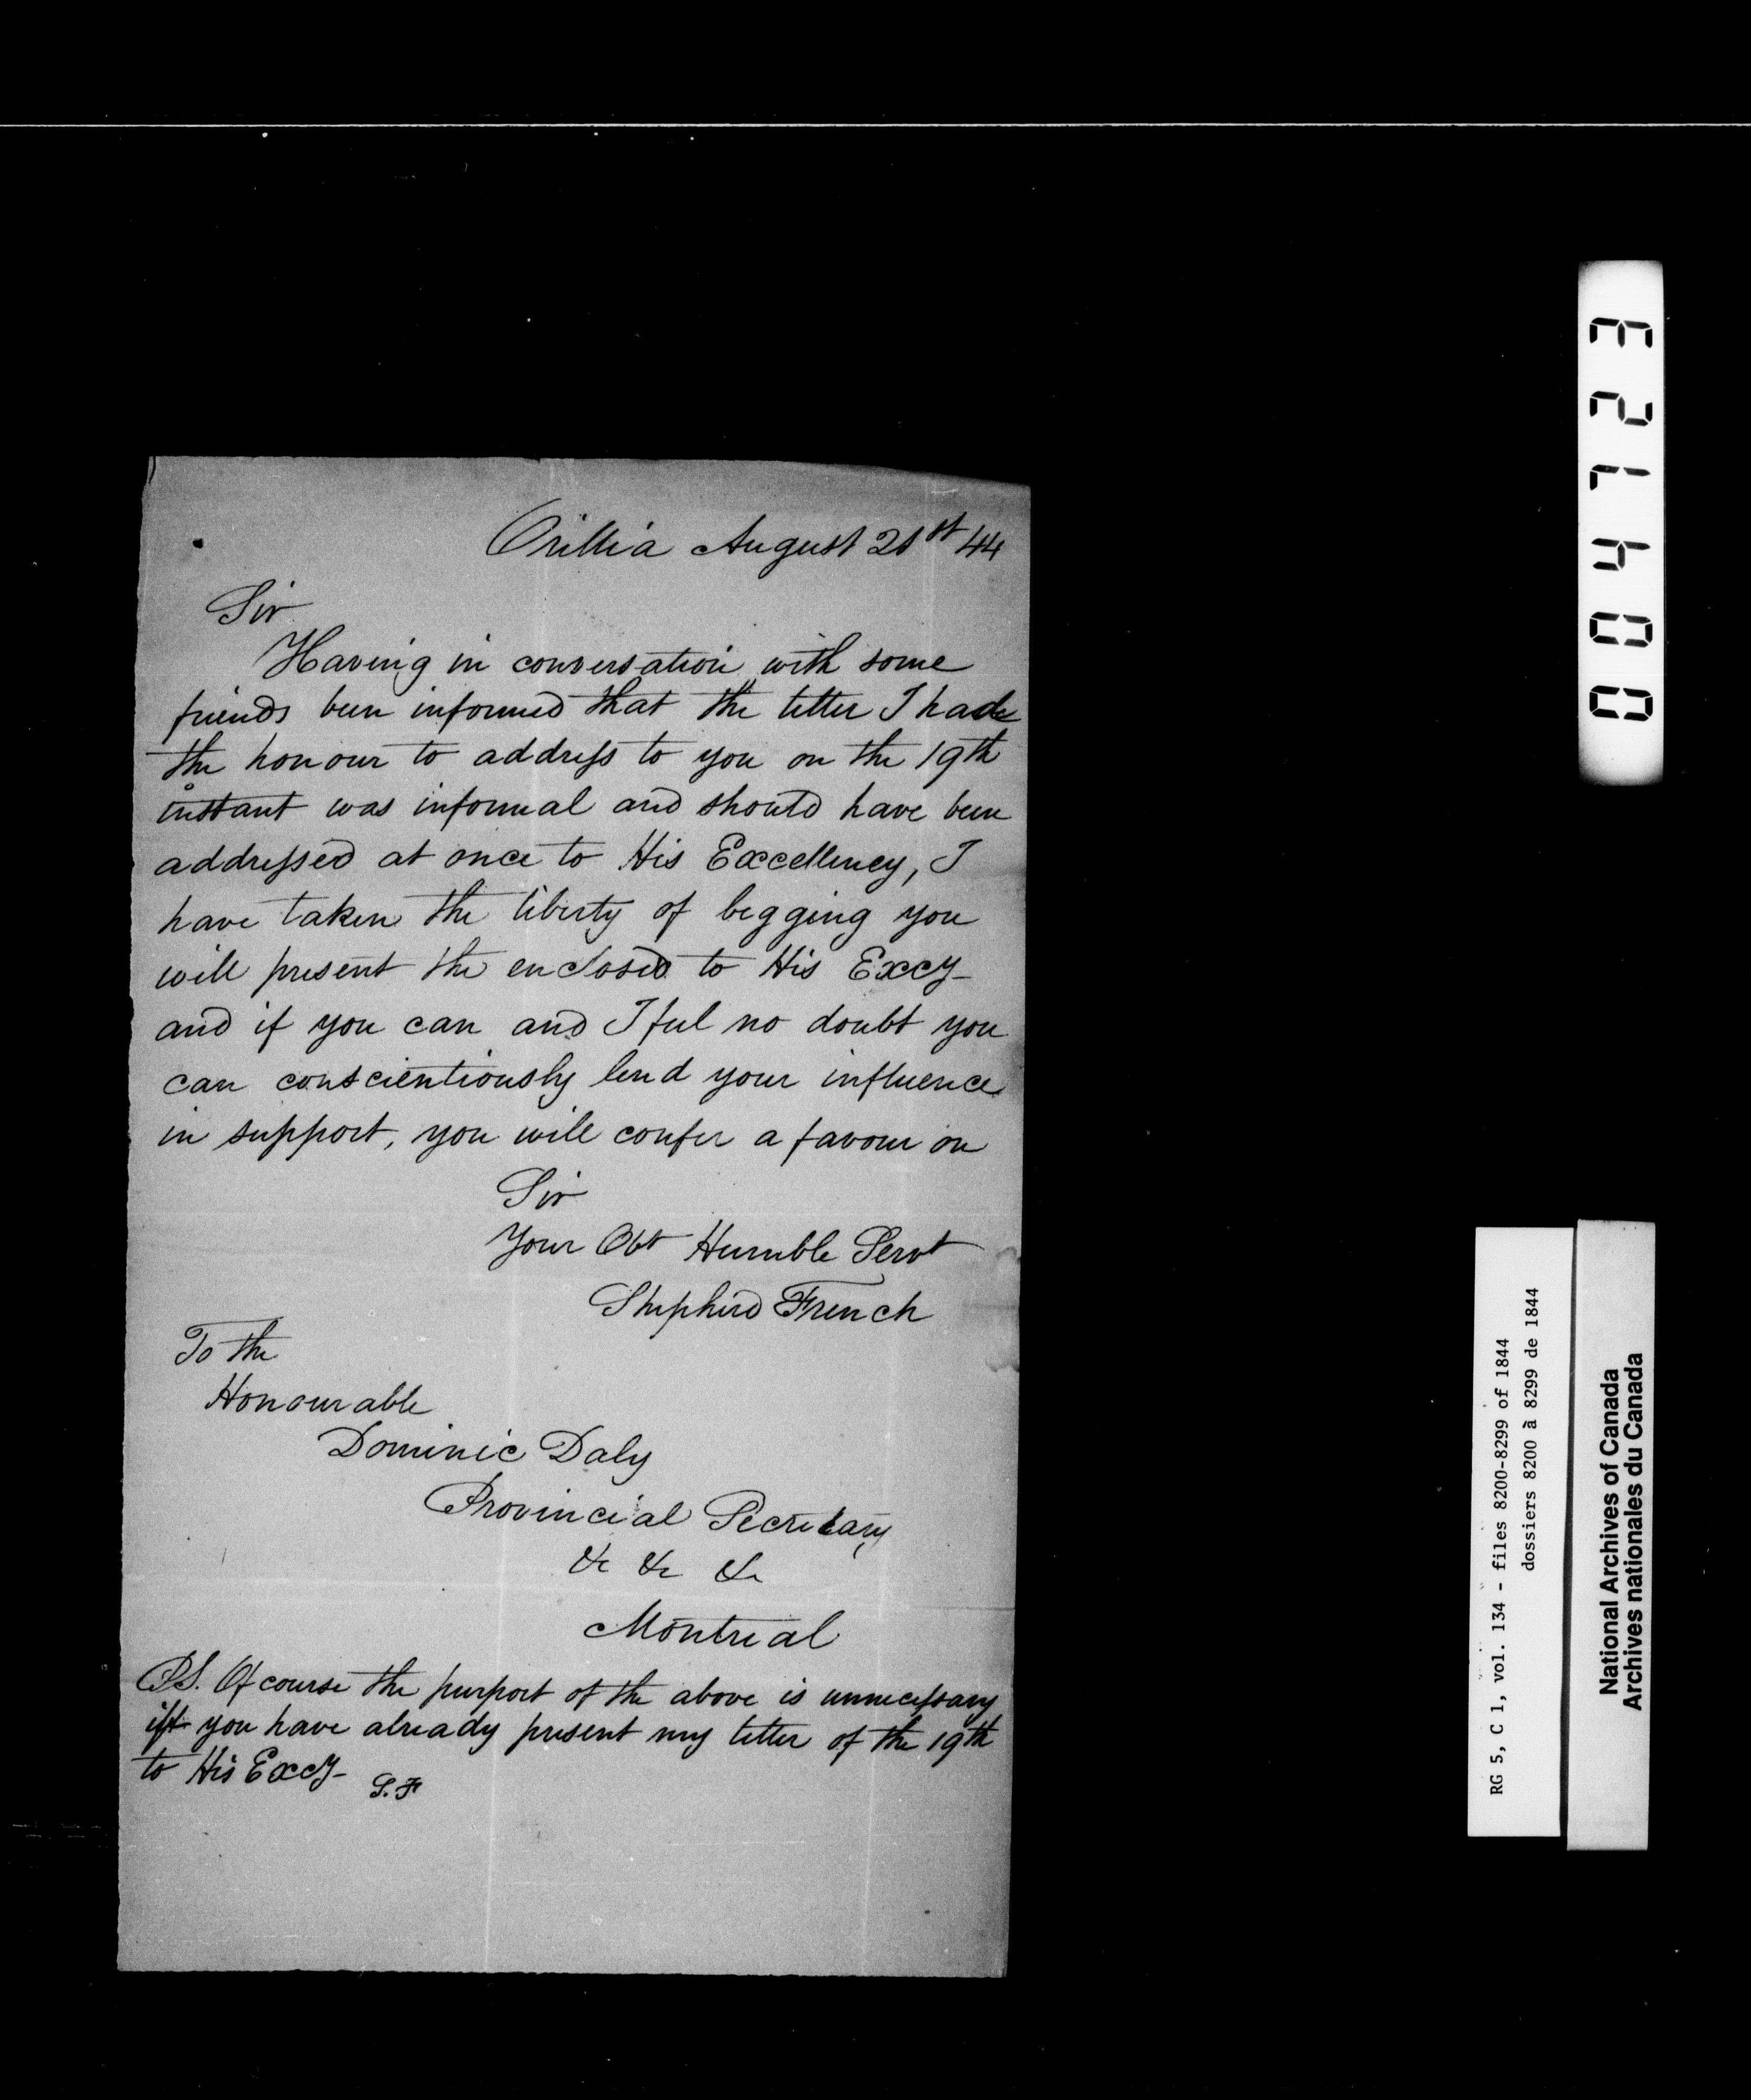 Orillia August 21st 44
Sir
Having in conversation with some
friends been informed that the letter I had
the honour to address to you on the 19th
instant was informal and should have been
addressed at once to His Excellency, I
have taken the liberty of begging you
will present the enclosed to His Excy
and if you can and I feel no doubt you
can conscientiously lend your influence
in support, you will confer a favour on
Sir
Your Obt Humble Servt
Shepherd French
To the
Honourable
Dominic Daly
Provincial Secretary
&c &c &c
Montreal
P.S. Of course the purport of the above is unnecessary
if you have already present my letter of the 19th
to His Excy S.F
004123
RG 5, C 1, vol. 134 - files 8200-8299 of 1844
dossiers 8200 à 8299 de 1844
National Archives of Canada
Archives nationales du Canada